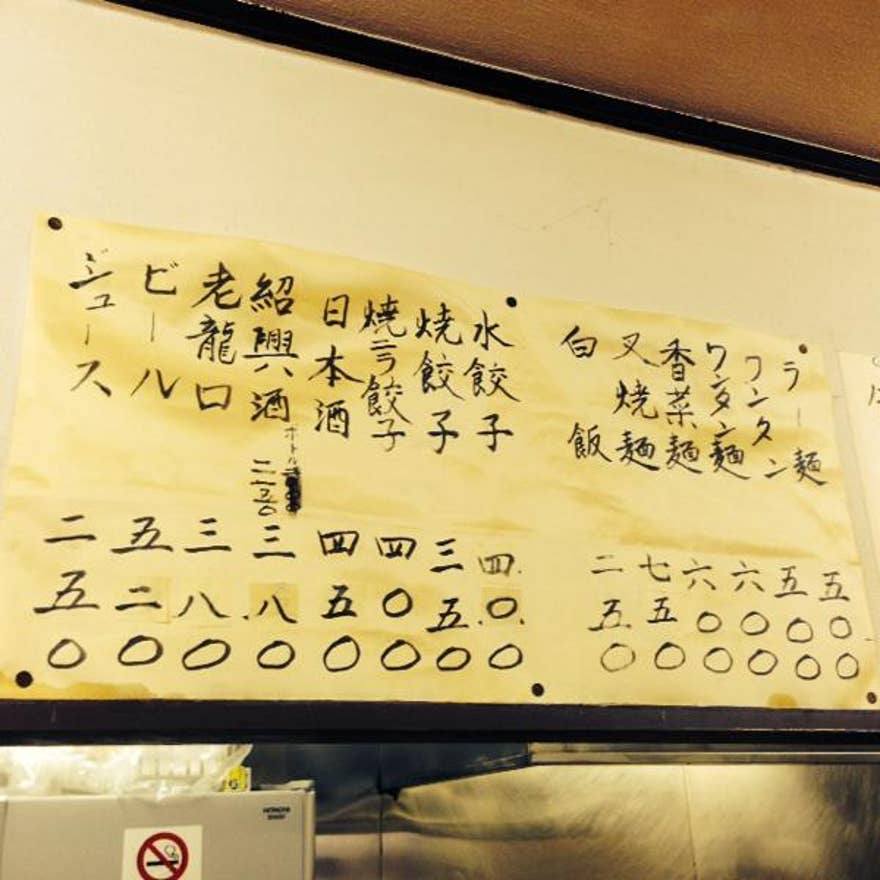 ラー麺 五〇〇
ワンタン 五〇〇
ワンタン麺 六〇〇
香菜麺 六〇〇
叉焼麺 七五〇
白飯 二五〇
水餃子 四〇〇
焼餃子 三五〇
焼ニラ餃子 四〇〇
日本酒 四五〇
紹興酒 三八〇
老龍口 三八〇
ビール 五二〇
ジュース 二五〇
HITACHI